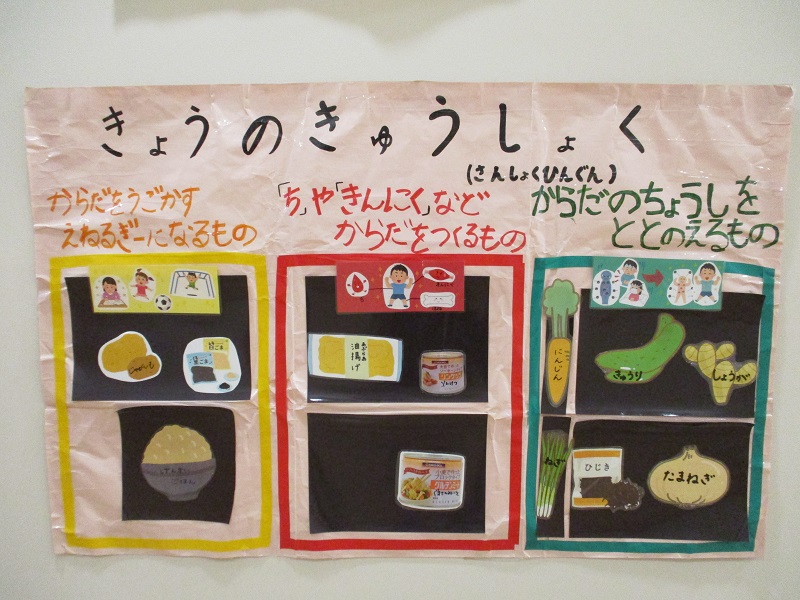 きょうのきゅうしょく
(さんしょくひんぐん)
からだをうごかす
えねるぎーになるもの
「ち」や「きんにく」など
からだをつくるもの
からだのちょうしを
ととのえるもの
油揚げ
にんじん
きゅうり
しょうが
ごはん
ねぎ
ひじき
たまねぎ